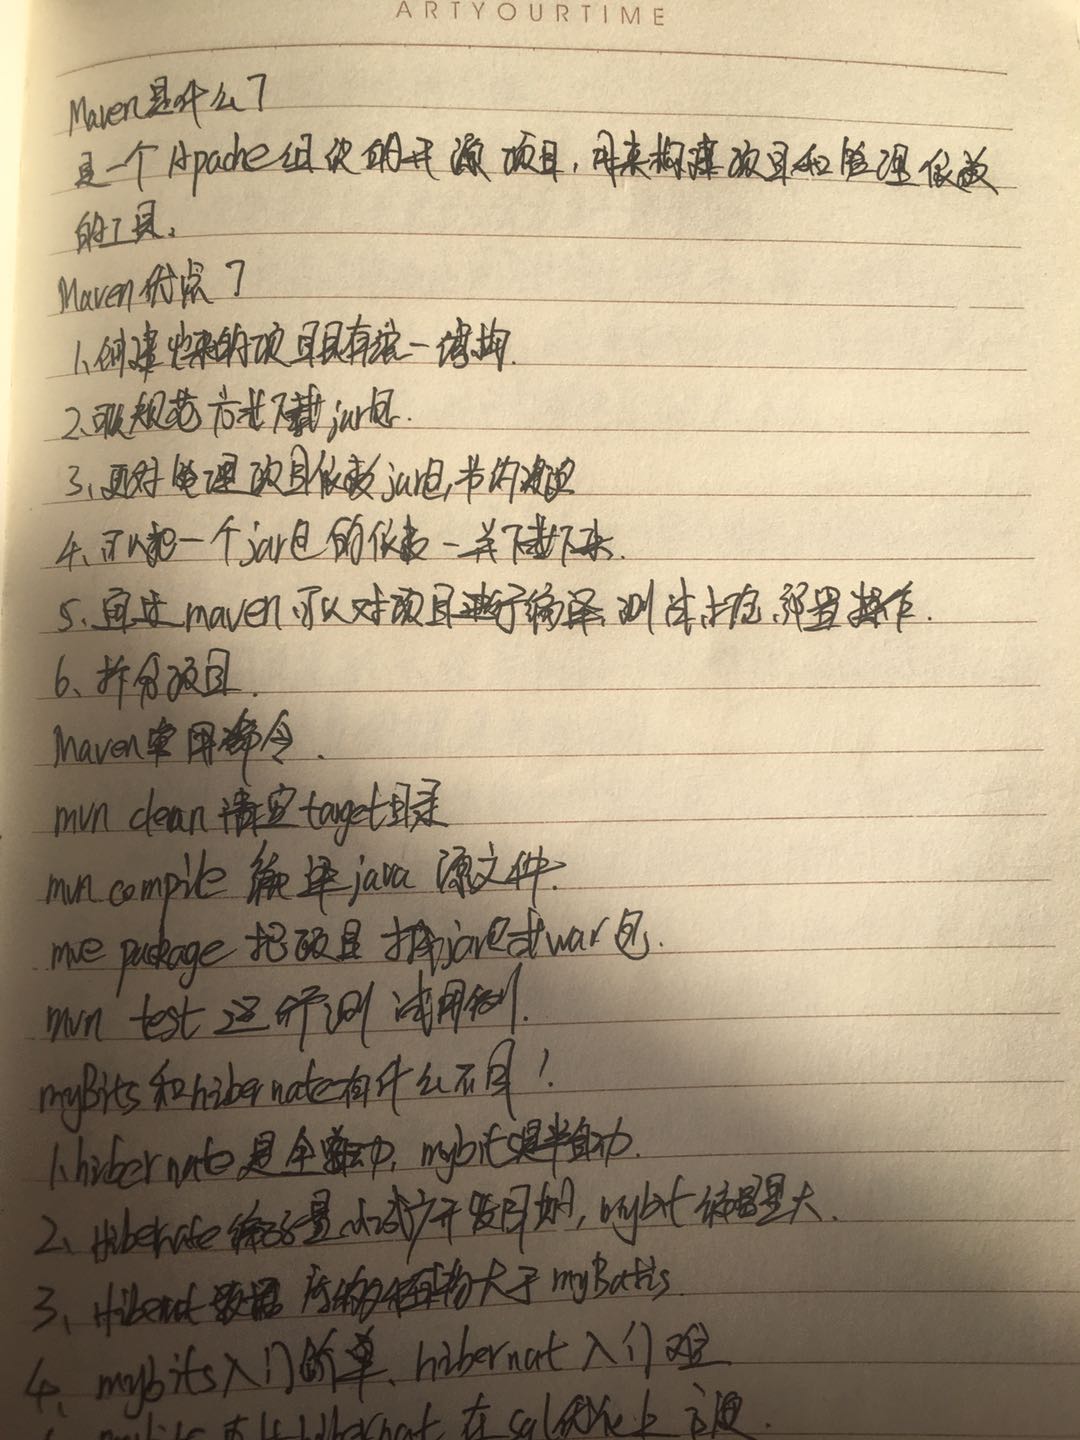 ARTYOURTIME
Maven是什么?
是一个Apache组织的开源项目,用来构建项目和管理依赖
的工具。
Maven优点?
1、创建出来的项目具有统一结构.
2、可以规范方式下载jar包.
3、更好管理项目依赖jar包,节约
4、可以把一个jar包的依赖一并下载下来.
5、通过maven可以对项目进行编译,测试,打包,部署操作.
6、拆分项目.
Maven常用命令.
mvn clean 清空target目录
mvn compile 编译java 源文件.
mve package 把项目 打成jar包或war包.
mvn test 运行测试用例.
myBits和hibernate有什么不同!
1.hibernate是全自动,mybits是半自动.
2、Hibernate 编码量小,减少开发周期,mybit编码量大.
3、Hibernat 数据库的移植性大于myBatis.
4、mybits入门简单、hibernat入门难
mybits 要比hibernat 在sql优化上方便.